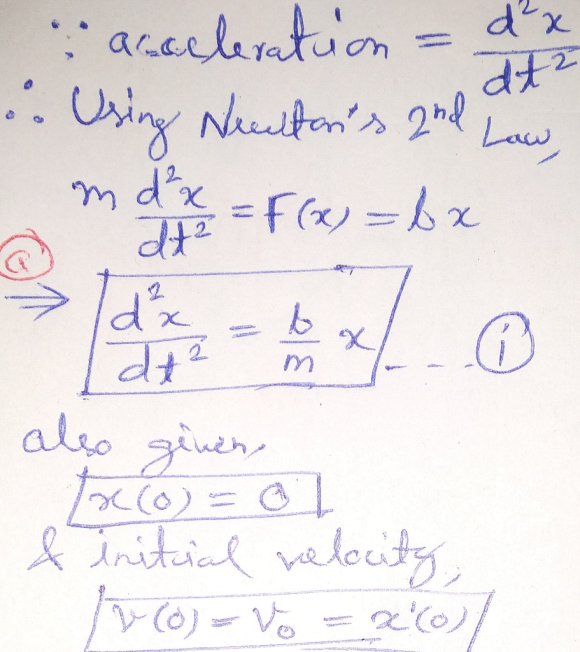 ∵ acceleration = d²x/dt²
∴ Using Newton's 2nd Law,
m d²x/dt² = F(x) = bx
(a)
⇒ d²x/dt² = b/m x ---- (i)
also given,
x(0) = 0
& initial velocity,
v(0) = V₀ = x'(0)